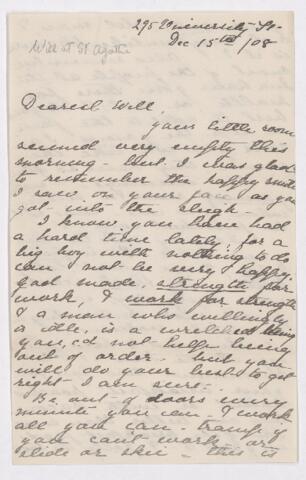 295 University St.
Dec 15th /08
Will at St Agathe
Dearest Will,
your little room
seemed very empty this
morning - but I was glad
to remember the happy smile
I saw on your face as you
got into the sleigh.
I know you have had
a hard time lately, for a
big boy with nothing to do
can not be very happy.
God made strength for
work, & work for strength
& a man who willingly
is idle, is a wretched thing
you c'd not help being
out of order. but you
will do your best to get
right I am sure.
Be out of doors every
minute you can. & work
all you can. tramp if
you can't work - or
slide or ski - this is